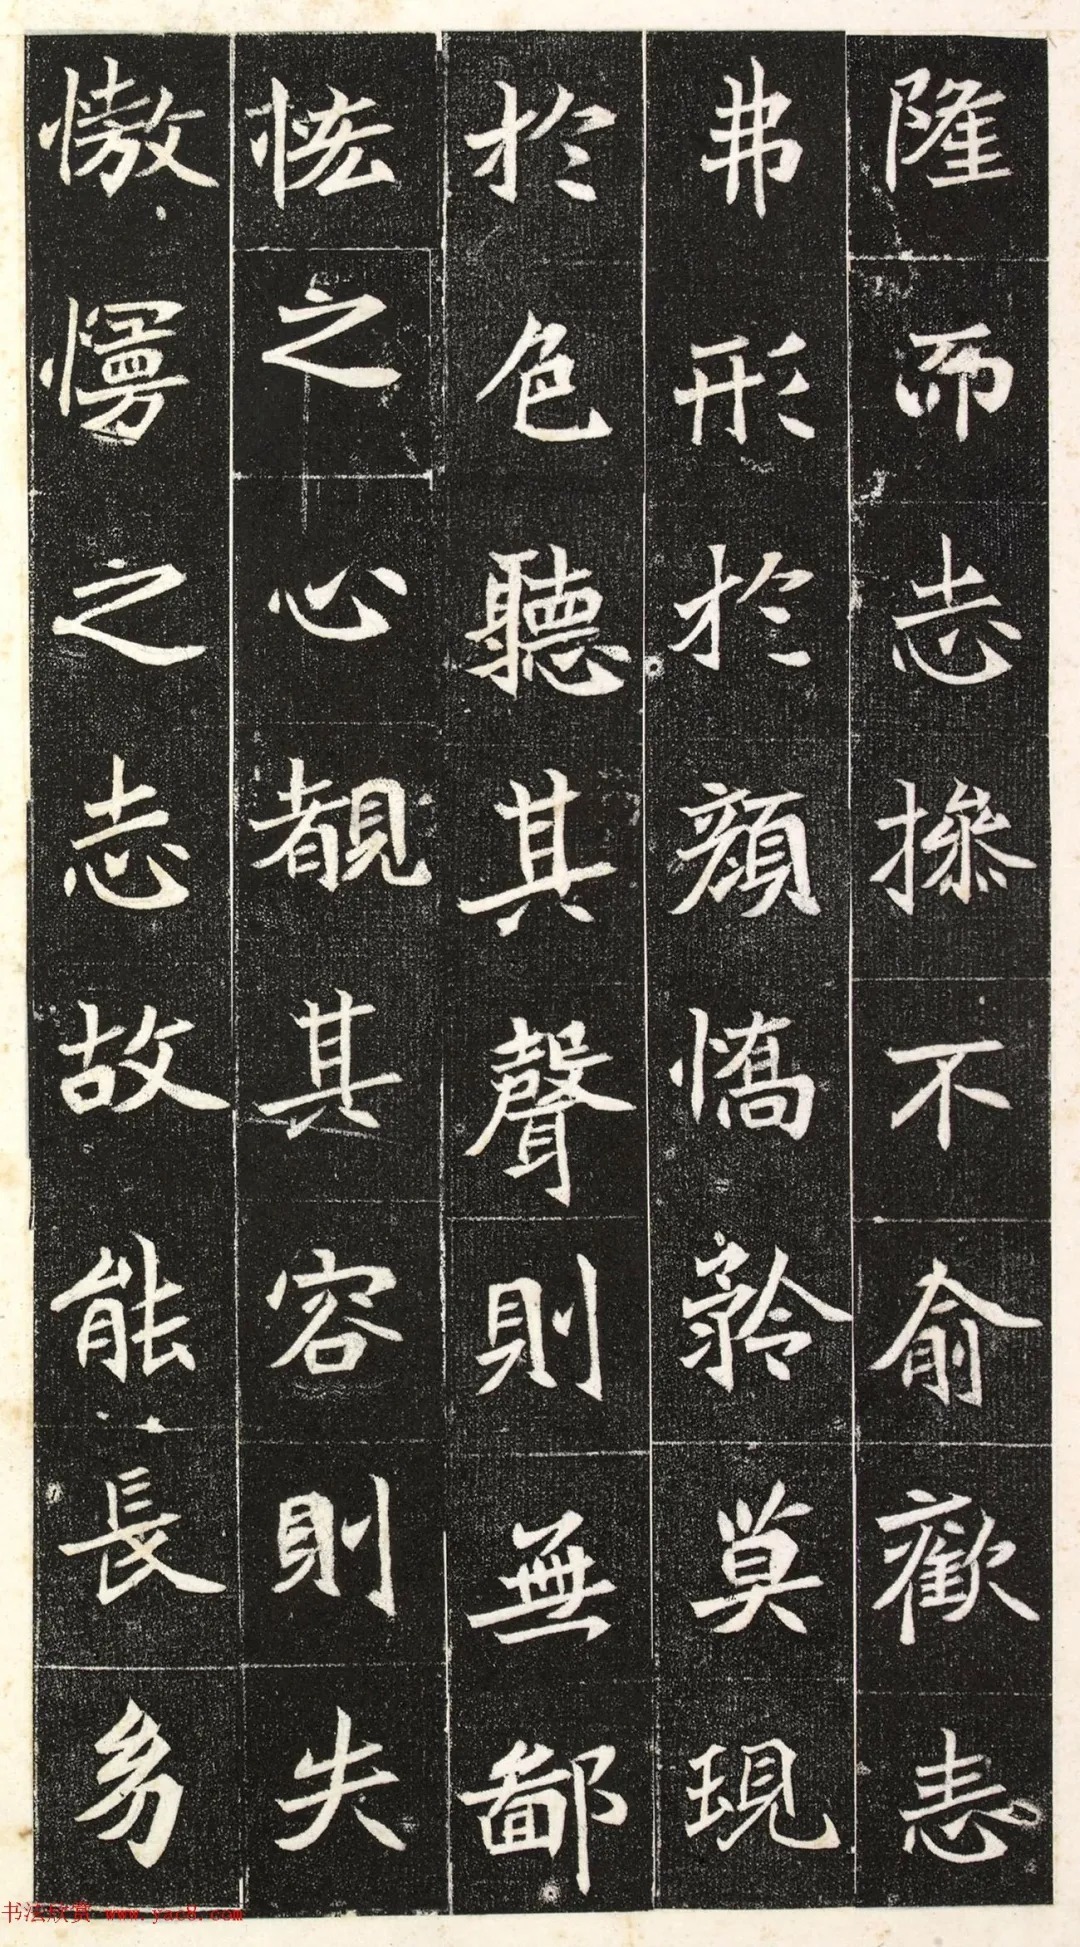 隆而志操不俞歡恚
弗形於顏憍矜莫現
於色聽其聲則無鄙
恡之心覩其容則失
憿慢之志故能長㓜
书法欣赏 www.yac8.com